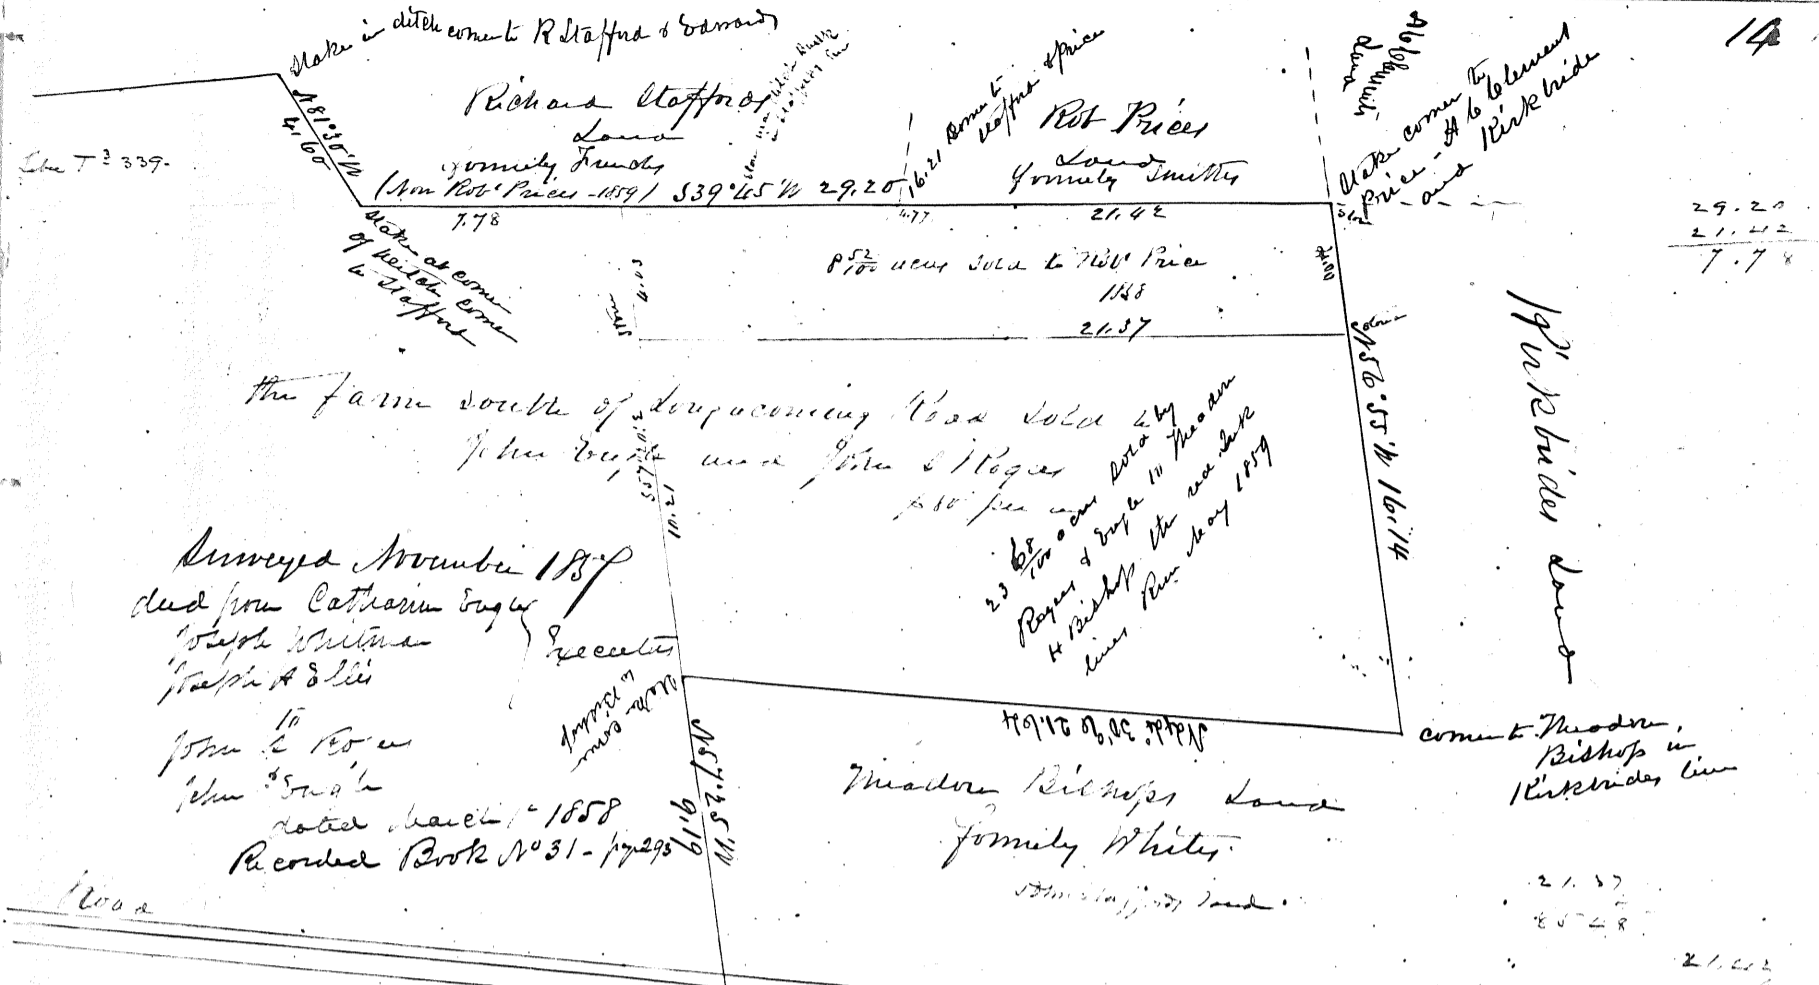 14
Stake in ditch corner to R Stafford & Edwards
N81°30'W
41.60
Richard Staffords
Land
formerly Frenchs
(Now Robt Prices - 1859) S39°45'W 29.20
16.21 corner to
Stafford & Price
Rob Prices
Land
formerly Smiths
H C Clements
Land
Stake corner to
Price - H C Clement
and Kirkbride
T 339-
7.78
4.77
21.42
Stone
29.20
21.42
7.78
Stake at corner
of ditch corner
to Stafford
8 52/100 acres sold to Robt Price
1858
4.00
4.03
Stone
21.37
Stone
N56°55'W 16.14
Kirkbrides Land
the farm south of Longacoming Road sold to
John Engle and John S Rogers
$80 per acre
23 68/100 acres sold by
Rogers & Engle to Theadore
H Bishop the red ink
lines Run May 1859
12.01
Surveyed November 1857
deed from Catharine Engle
Joseph Whitman
Joseph A Ellis
Executors
to
John Rogers
& John Engle
dated March 1st 1858
Recorded Book No 31 - page 293
Stake corner
to Bishop
N57.25W
9.19
21.64
corner to Theadore
Bishop in
Kirkbrides line
Theadore Bishops Land
formerly Whites
Staffords Land
Road
21.37
8548
21.42